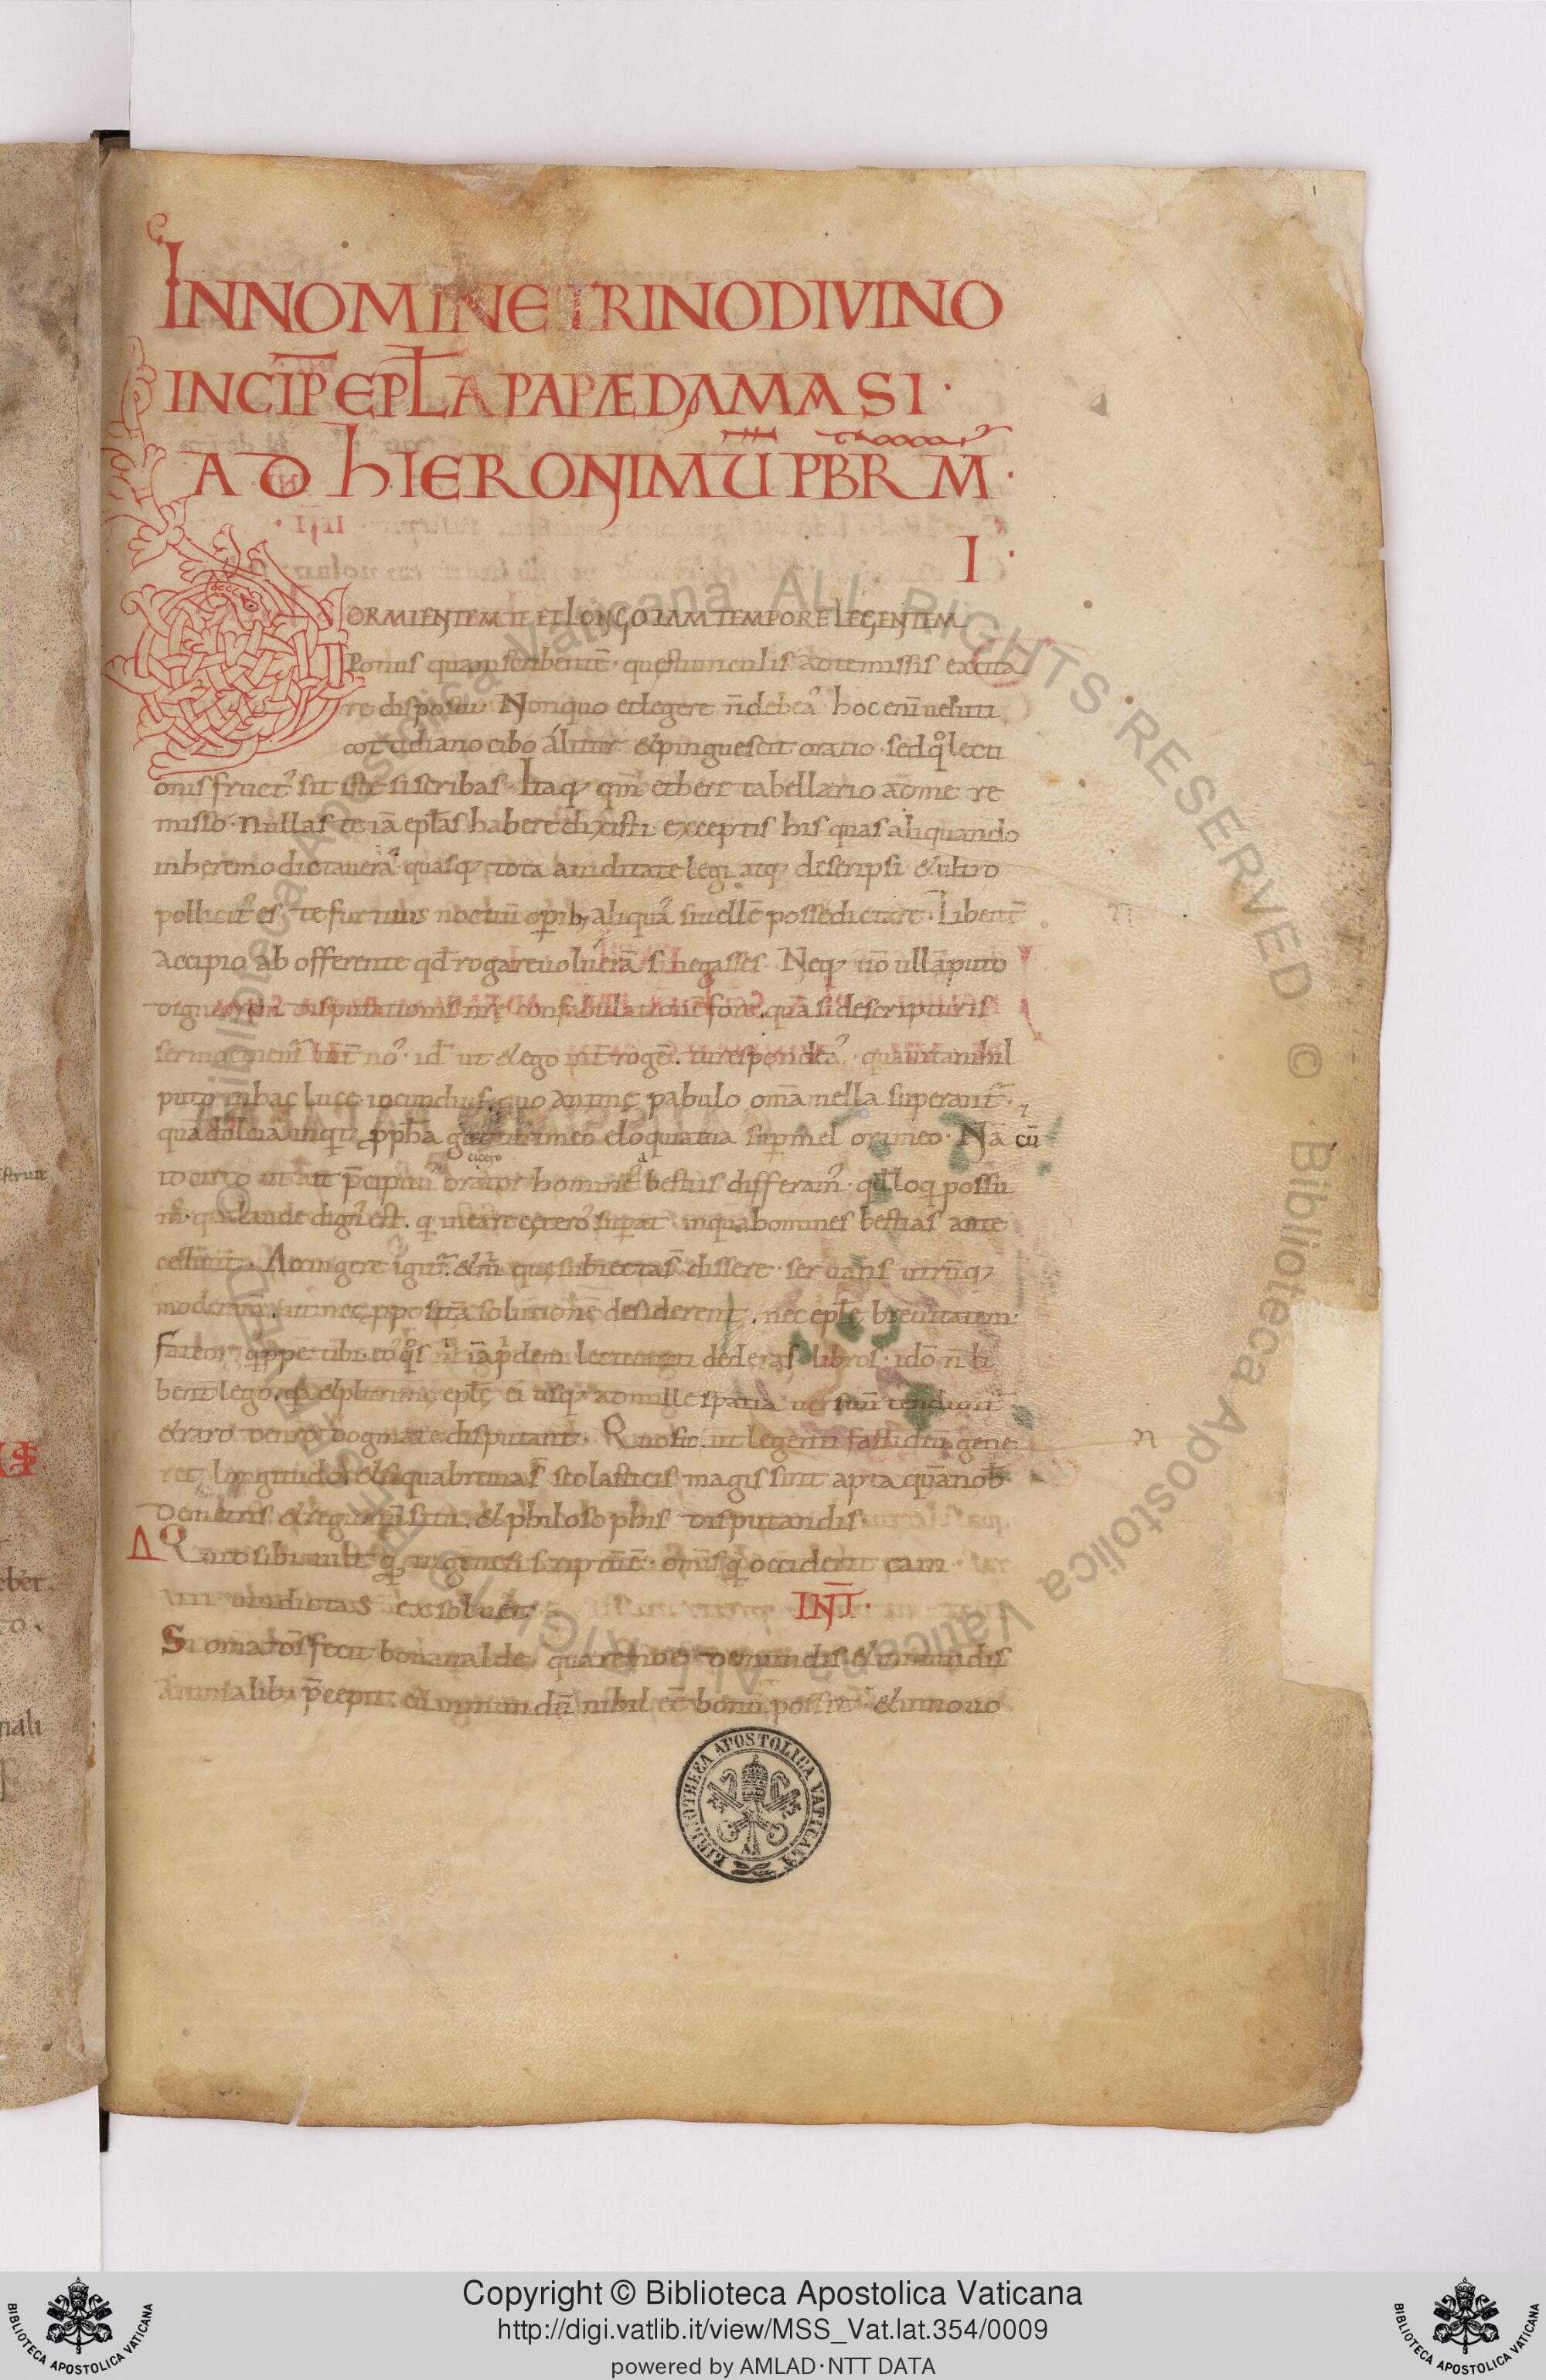 1
INNOMINE TRINO DIVINO
INCIP̅ EPL̅A PAPÆ DAMASI ·
AD hIERONIMU̅ PBRM̅ ·
I ·
DORMIENTEM TE ET LONGO IAM TEMPORE LEGENTEM
Potius quam scribente̅ · questiunculis ad te missis excita
re disposui · Non quo et legere n̅ debeas hoc eni̅ veluti
cottidiano cibo alitur & pinguescit oratio · sed qͦ lecti
onis fruct' sit iste si scribas · Itaq; qm̅ et heri tabellario ad me re
misso · nullas te ia̅ epl̅as habere dixisti exceptis his quas aliquando
in heremo dictaueras · quasq; tota auiditate legi atq; descripsi · & ultro
pollicit' es te furtiuis noctiu̅ operib; aliqua' si velle̅ posse dictare · Libent̅
accipio ab offerente qd̅ rogare uoluera̅ si negasses · Neq; uo̅ ulla̅ puto
digniore̅ disputationis nr̅e confabulatione̅ fore · qua̅ si de scripturis
sermocinem' int̅ nos · id̅ ut & ego int̅roge̅ · tu respondeas · qua vita nihil
puto in hac luce iocundius · quo anime pabulo om̅a mella superant̅ ·
qua̅ dulcia inquit pph̅a gutturi meo eloquia tua sup mel ori meo · Na̅ cu̅
cicero
idcirco ut ait p̅cipuus orator homines a bestiis differam' · qd̅ loqi possu
m' · qua laude dign' est · qi in ea re ceteros supat in qua homines bestias ante
cellunt · Accingere igit̅ · & m̅ que subiecta s̅ dissere · seruans utru̅q;
moderam̅ · ut nec pposita solutione̅ desiderent · nec epl̅e breuitatem ·
Fateor qippe tibi eos qͦs m̅ ia̅p̅dem lectantii dederas libros · ido̅ n̅ li
bent̅ lego · qa & plurime epl̅e ei' usq; ad mille spatia uersuu̅ tendunt̅
& raro de nr̅o dogmate disputant · Quo fit · ut legenti fastidiu̅ gene
ret longitudo · & siqua breuia s̅ scolasticis magis sint apta qua̅ nob̅
de metris & regionu̅ situ · & philosophis disputandis
Quid sibi uult qd̅ in genesi scriptu̅ e̅ · om̅is qi occiderit cain
vii uindictas exsoluet ·
INT̅ ·
Si om̅a do̅s fecit bona ualde quare noe de mundis & immundis
animalib; p̅cepit · cu̅ inmundu̅ nihil ee̅ bonu̅ possit · & in nouo
BIBLIOTHECA APOSTOLICA VATICANA
Copyright © Biblioteca Apostolica Vaticana
http://digi.vatlib.it/view/MSS_Vat.lat.354/0009
powered by AMLAD·NTT DATA
BIBLIOTECA APOSTOLICA VATICANA
BIBLIOTECA APOSTOLICA VATICANA